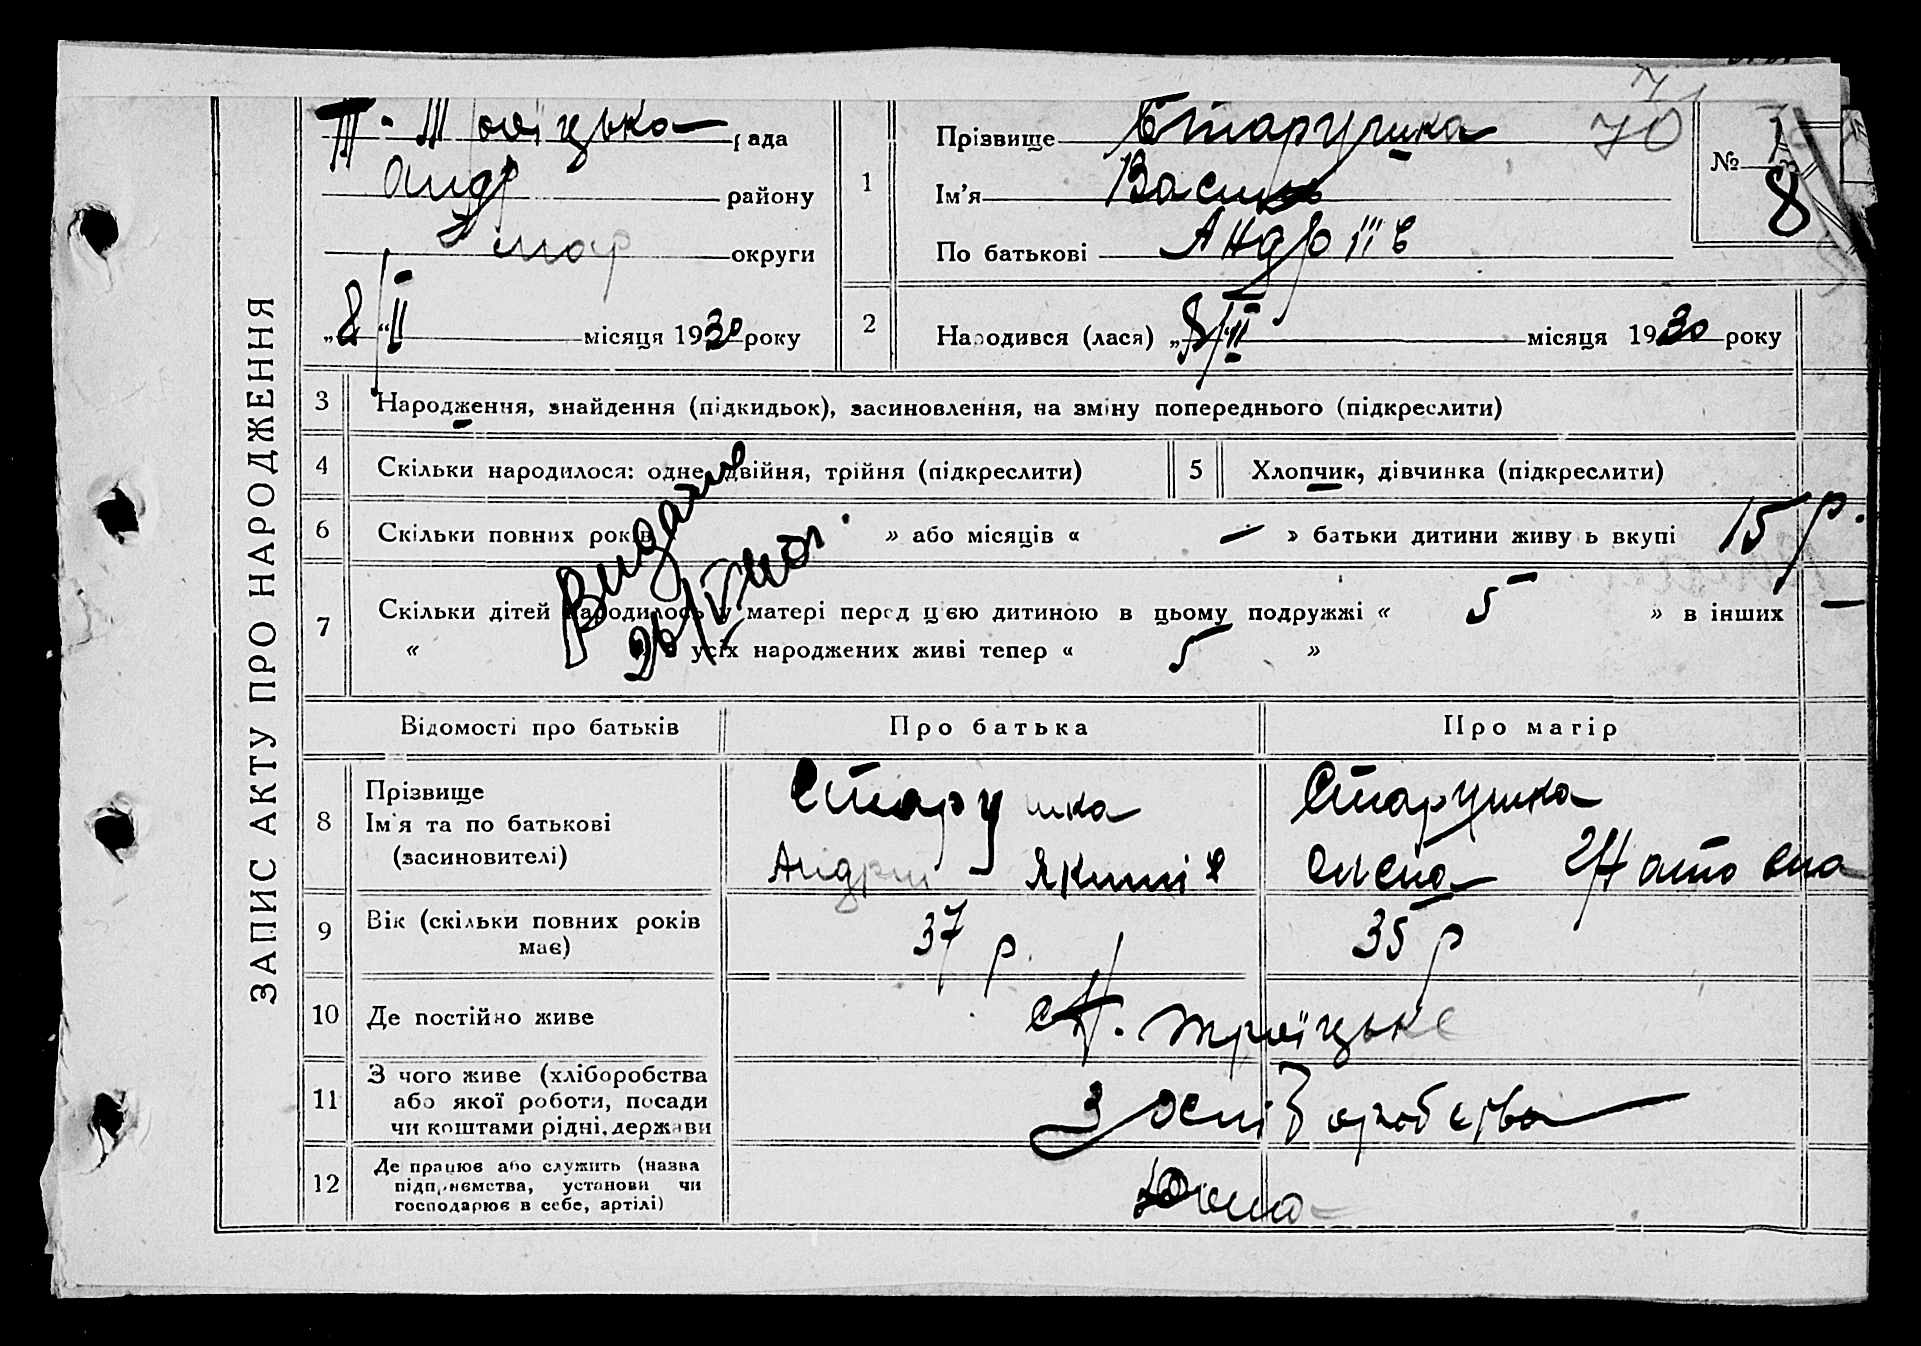 ЗАПИС АКТУ ПРО НАРОДЖЕННЯ
Троїцька рада
Андр району
округи
„8“ II місяця 1930 року
1
Прізвище Старушка
Ім'я Василь
По батькові Андріїв
70
№ 8
2
Народився (лася) „8/II місяця 1930 року
3 Народження, знайдення (підкидьок), засиновлення, на зміну попереднього (підкреслити)
4 Скільки народилося: одне, двійня, трійня (підкреслити)
5 Хлопчик, дівчинка (підкреслити)
6 Скільки повних років » або місяців « — » батьки дитини живуть вкупі 15 р.
7 Скільки дітей народилось у матері перед цією дитиною в цьому подружжі « 5 » в інших —
« усіх народжених живі тепер « 5 »
Відомості про батьків Про батька Про матір
8 Прізвище
Ім'я та по батькові
(засиновителі)
Старушка
Андрій Якимів
Старушка
Олена
9 Вік (скільки повних років
має)
37 р.
35 р
10 Де постійно живе
Троїцьке
11 З чого живе (хліборобства
або якої роботи, посади
чи коштами рідні, держави
З
12 Де працює або служить (назва
підприємства, установи чи
господарює в себе, артілі)